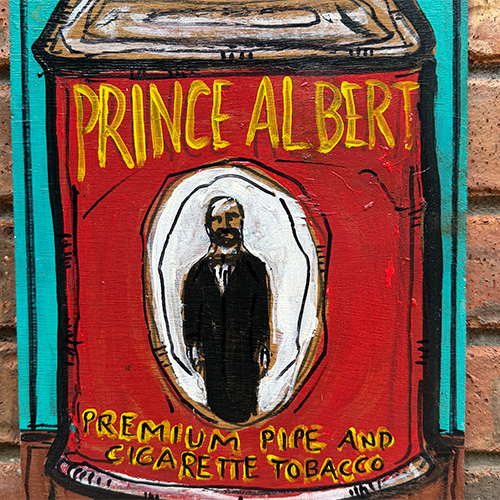 PRINCE ALBERT
PREMIUM PIPE AND
CIGARETTE TOBACCO